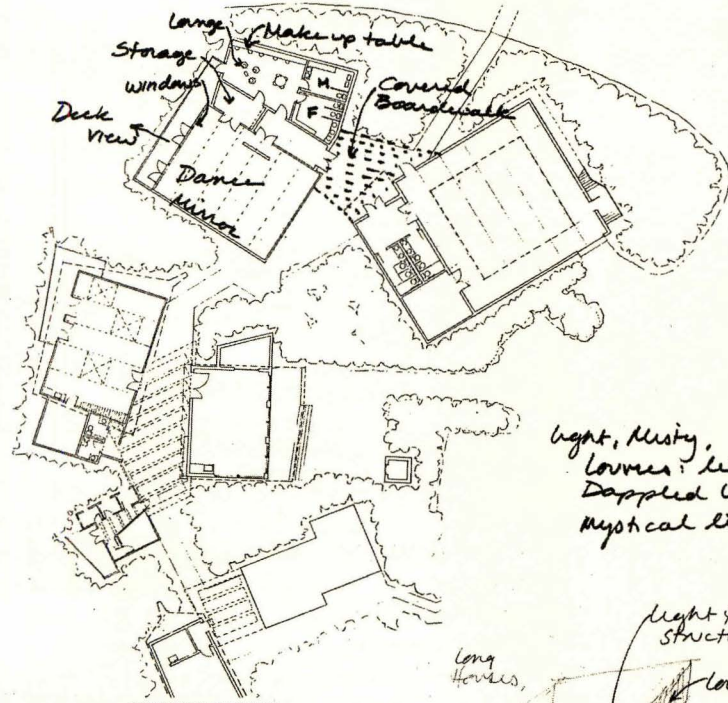 Lounge
Make up table
Storage
windows
Deck
View
M
F
Covered
Boardwalk
Dance
Mirror
Light, Misty,
Louvres:
Dappled
Mystical
Light
Struct
Long
Houses,